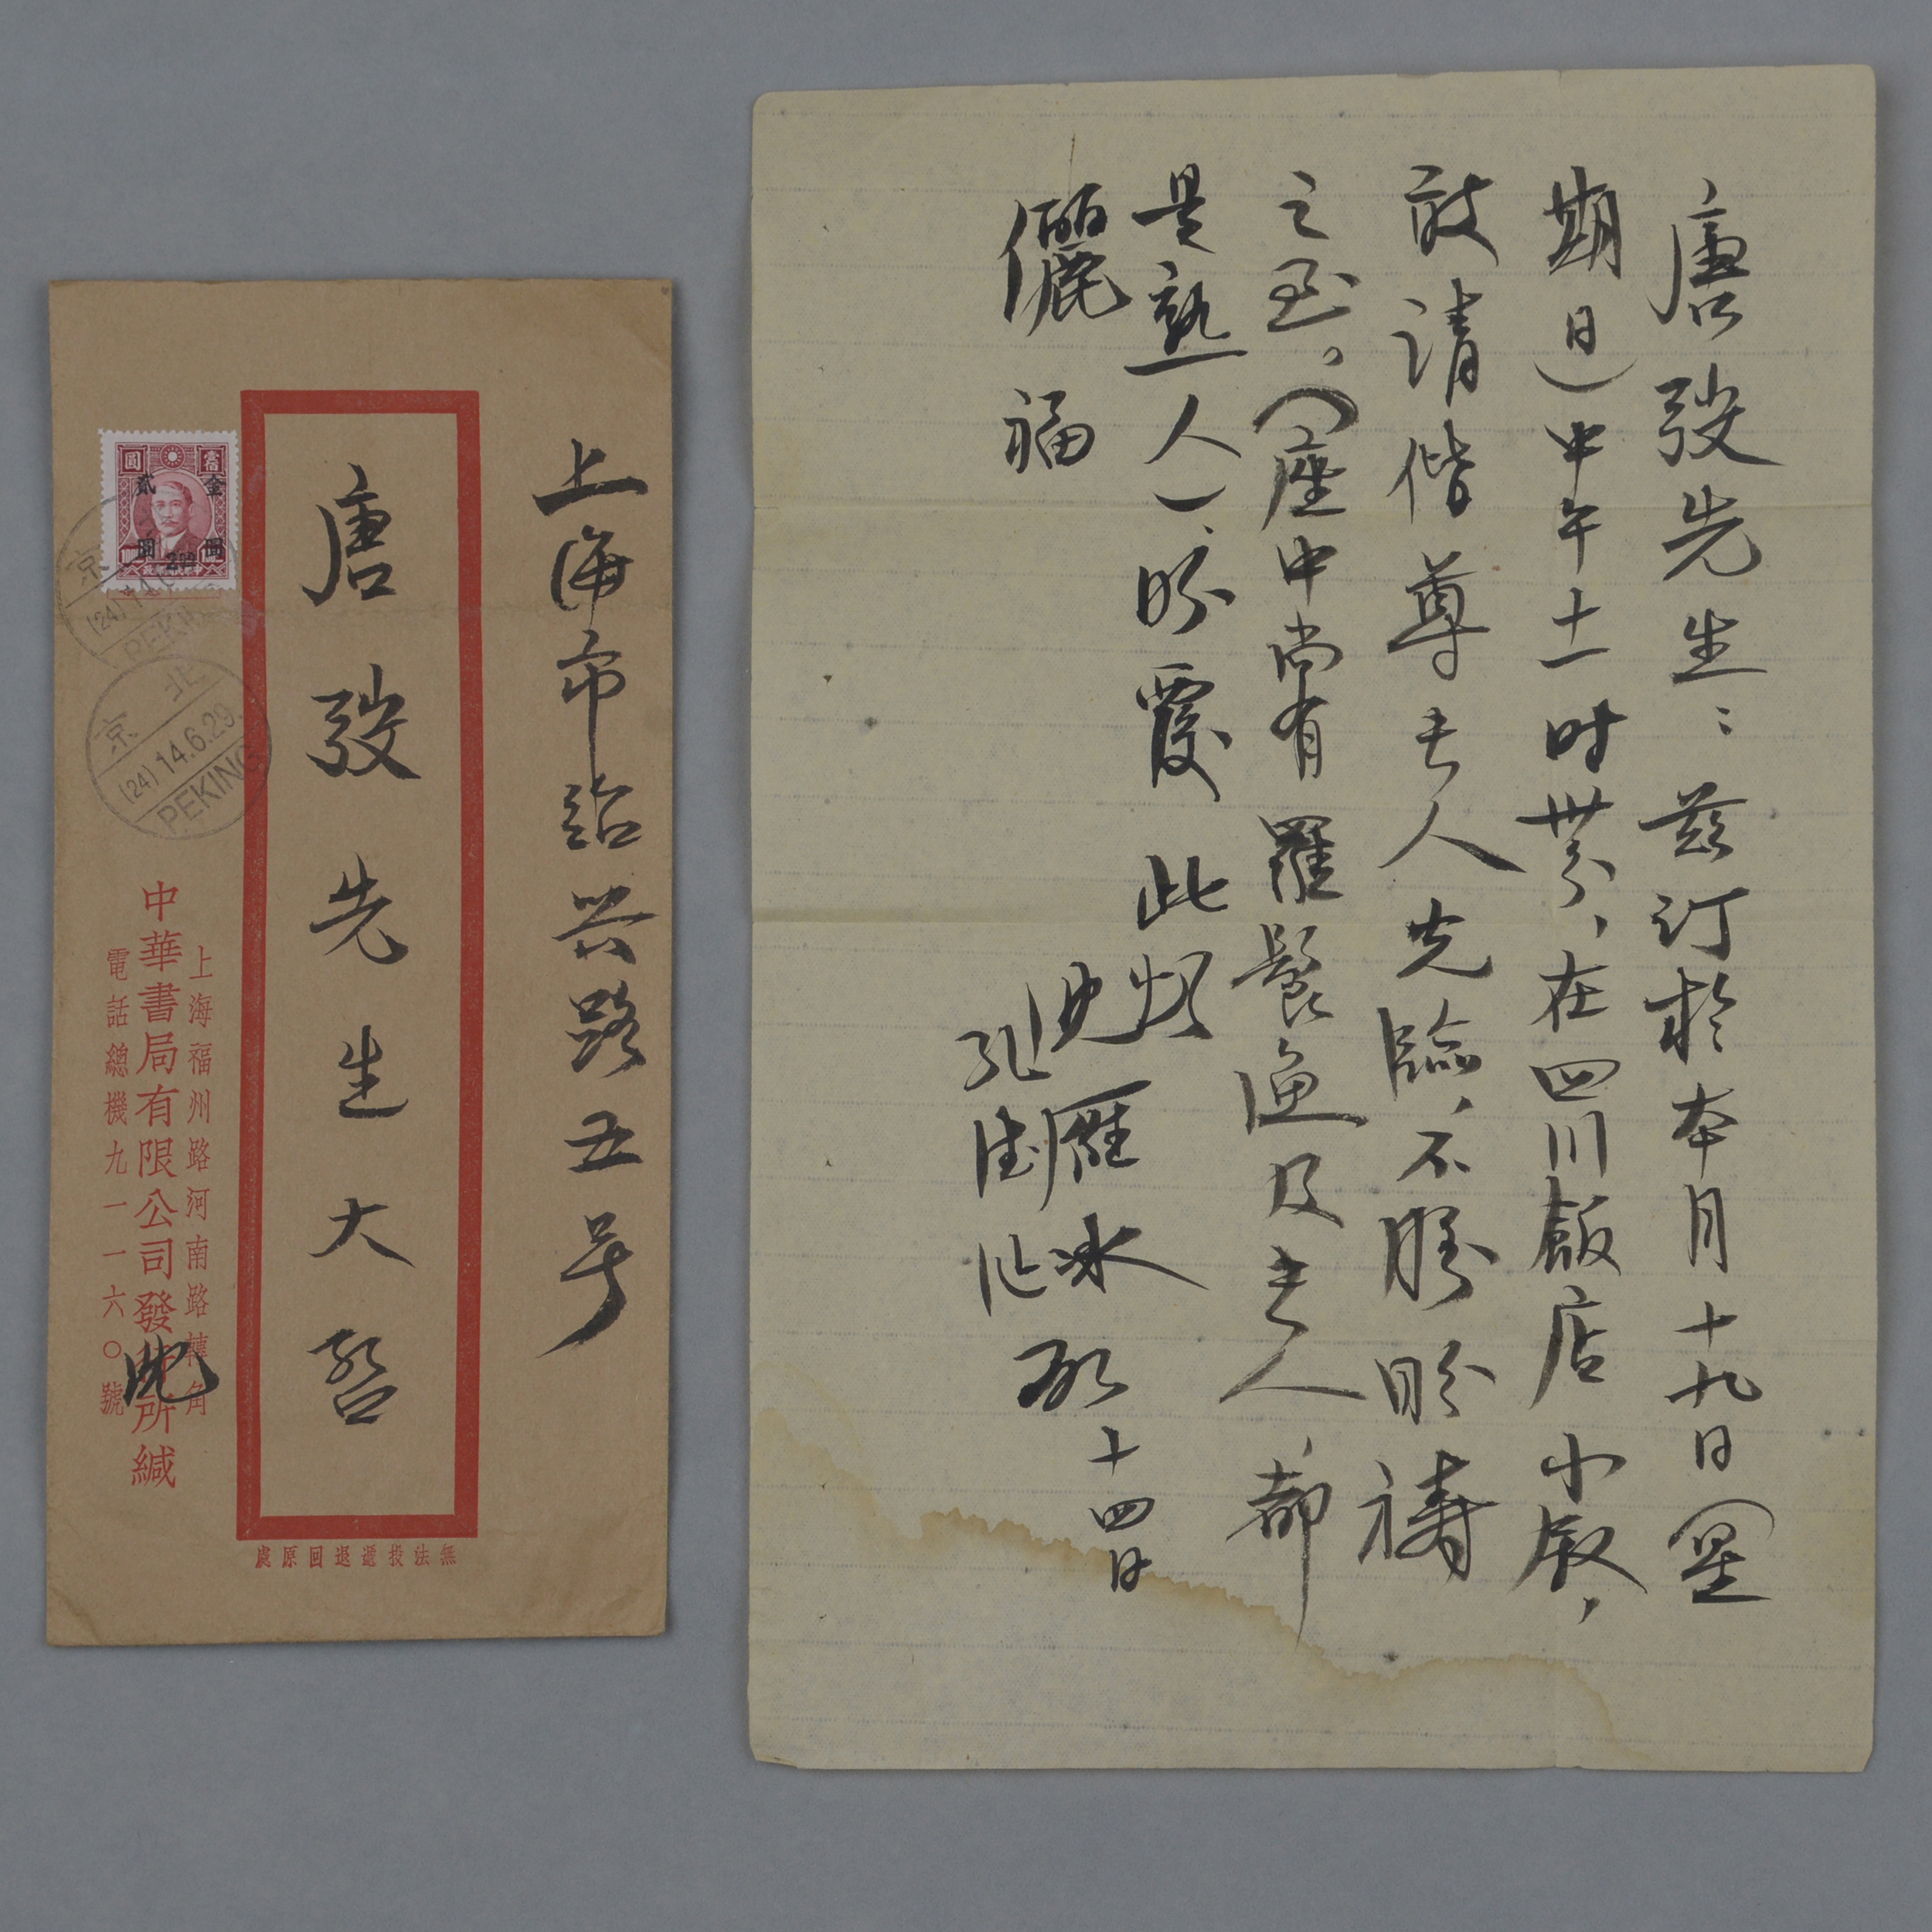 上海市紹兴路五号
唐弢先生大啓
上海福州路河南路轉角
中華書局有限公司發行所緘
電話總機九一一六〇號
沈
無法投遞退回原處
金圓
貳圓
北京
(24) 14.6.29.
PEKING
唐弢先生：兹订於本月十九日（星
期日）中午十一时卅分，在四川飯店小叙，
敢请偕尊夫人光臨，不勝盼禱
之至。（座中尚有羅髫漁及夫人，都
是熟人）、盼覆 此頌
儷福
沈雁冰
孔德沚 啟 十四日